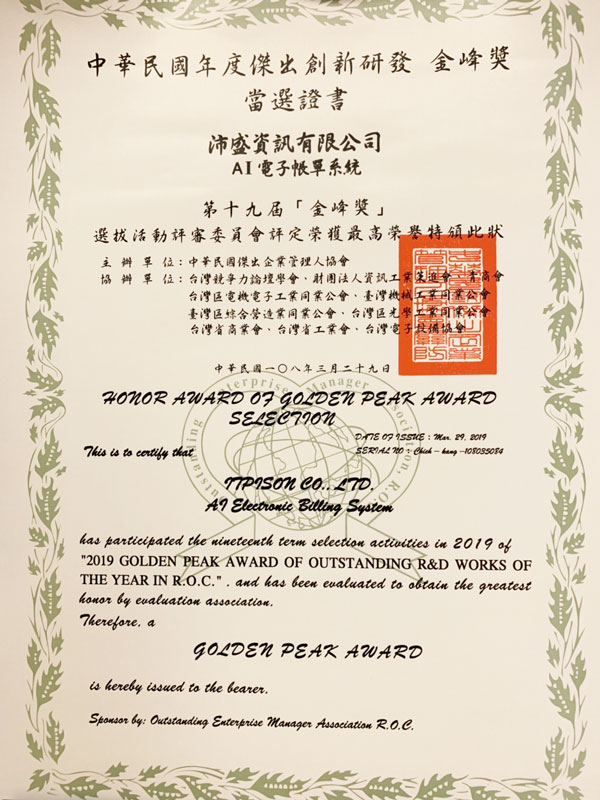 中華民國年度傑出創新研發 金峰獎
當選證書
沛盛資訊有限公司
AI 電子帳單系統
第十九屆「金峰獎」
選拔活動評審委員會評定榮獲最高榮譽特頒此狀
主辦單位:中華民國傑出企業管理人協會
協辦單位:台灣競爭力論壇學會、財團法人資訊工業策進會、青商會
台灣區電機電子工業同業公會、臺灣機械工業同業公會
臺灣區綜合營造業同業公會、台灣區光學工業同業公會
台灣省商業會、台灣省工業會、台灣電子設備協會
中華民國一〇八年三月二十九日
HONOR AWARD OF GOLDEN PEAK AWARD
SELECTION
DATE OF ISSUE : Mar. 29, 2019
This is to certify that
SERIAL NO : Chieh - kang -108035084
ITPISON CO., LTD.
AI Electronic Billing System
has participated the nineteenth term selection activities in 2019 of
"2019 GOLDEN PEAK AWARD OF OUTSTANDING R&D WORKS OF
THE YEAR IN R.O.C." . and has been evaluated to obtain the greatest
honor by evaluation association.
Therefore, a
GOLDEN PEAK AWARD
is hereby issued to the bearer.
Sponsor by: Outstanding Enterprise Manager Association R.O.C.
Outstanding Enterprise Manager Association R.O.C.